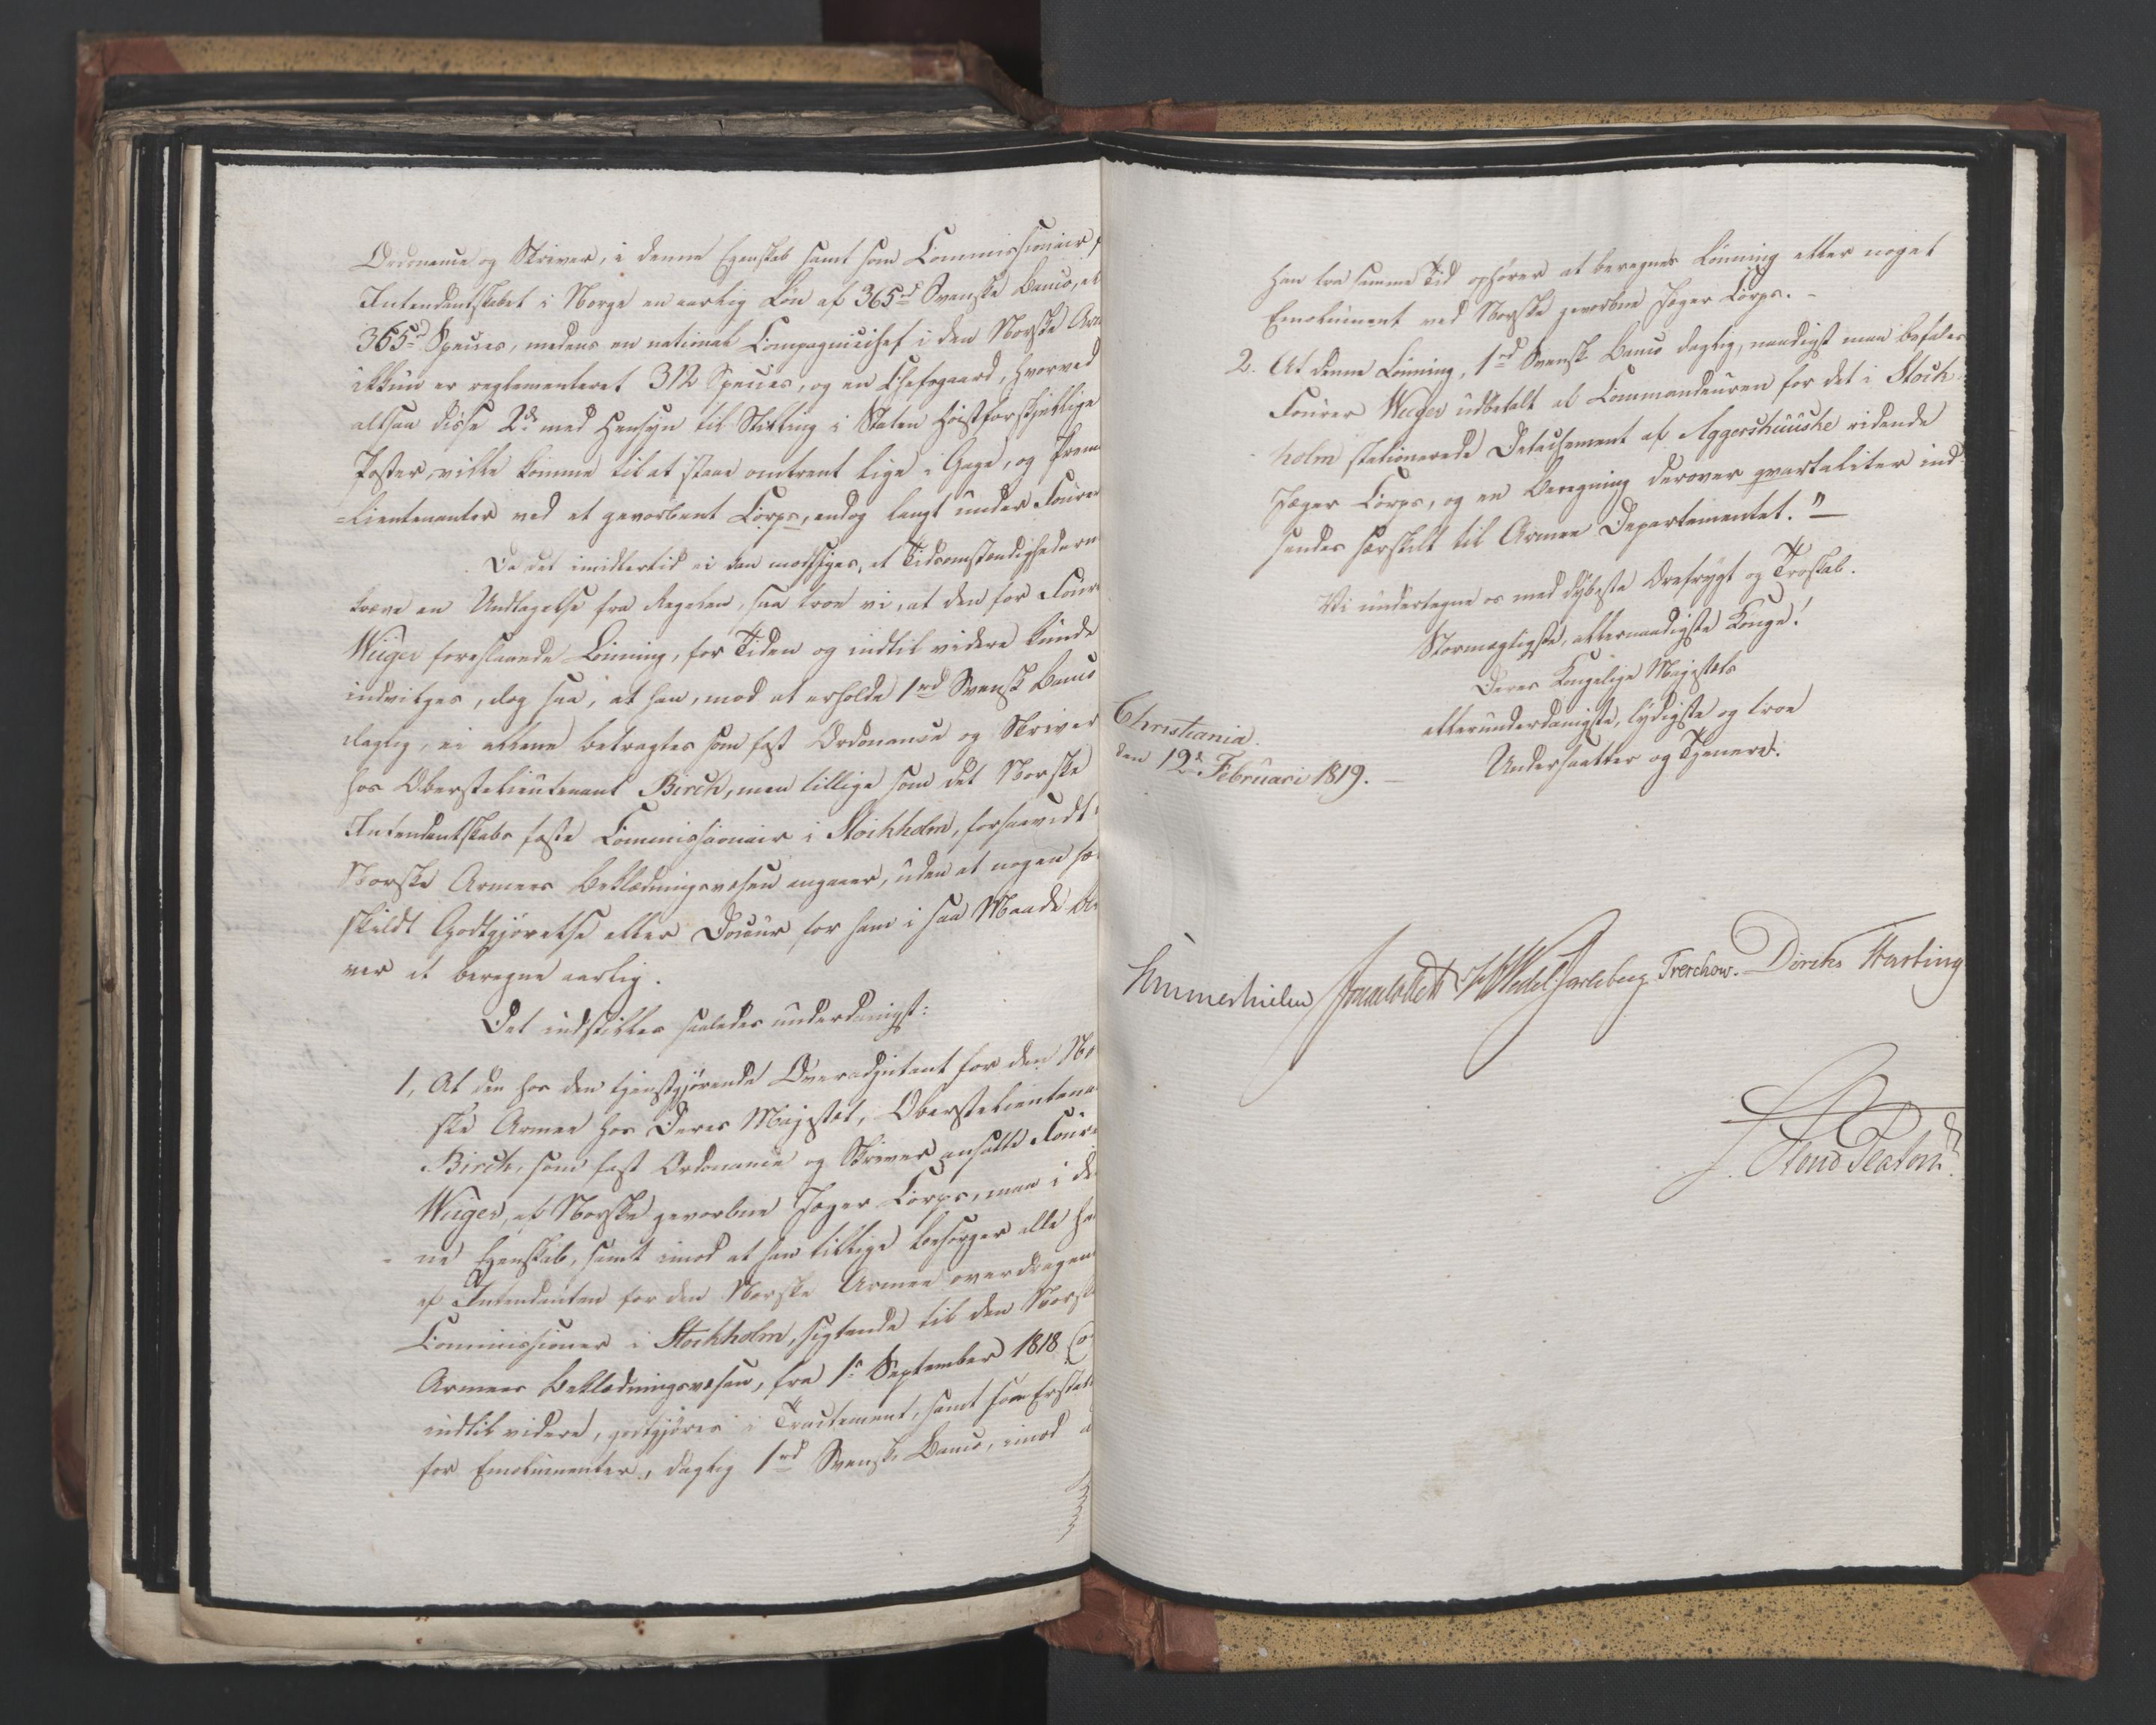 Ordonance og Skriver, i denne Egenskab samt som Commissionair
Intendantskabet i Norge en aarlig Løn af 365 rd Svenske Banco,
365 rd Species, medens en national Compagniechef i den Norske
ikkun er reglementeret 312 Species, og en Chefsgaard, hvorved
altsaa disse 2de med Hensyn til Stilling i Staten høistforskjellige
Poster, ville komme til at staae omtrent lige i Gage, og Prem
-Lieutenanter ved et gevorbent Corps, endog langt under Fourer
Da det imidlertid ei kan modsiges, at Tidsomstændighedern
kræve en Undtagelse fra Regelen, saa troe vi, at den for Four
Wüger foreslaaede Lønning, for Tiden og indtil videre kunde
indvilges, dog saa, at han, mod at erholde 1 rd Svensk Banco
daglig, ei allene betragtes som fast Ordonance og Skriver
hos Oberstelieutenant Birch, men tillige som det Norske
Intendantskabs faste Commissionair i Stockholm, forsaavidt
Norske Armees Beklædningsvæsen angaaer, uden at nogen sær
skildt Godtgjørelse eller Douceur for ham i saa Maade
ver at beregne aarlig.
Det indstilles saaledes underdanigst:
1, At den hos den tjenstgjørende Overadjutant for den No
ske Armee hos Deres Majestæt, Oberstelieutena
Birch, som fast Ordonance og Skriver ansatte Four
Wüger, af Norske gevorbne Jæger Corps, maa i de
ne Egenskab, samt imod at han tillige besørger alle ha
af Intendanten for den Norske Armee overdragen
Commissioner i Stockholm, sigtende til den Norsk
Armees Beklædningsvæsen, fra 1 September 1818
indtil videre, godtgjøres i Tractement, samt som Erstat
for Emolumenter, daglig 1 rd Svensk Banco, imod a
han fra samme Tid ophører at beregnes Lønning eller noget
Emolument ved Norske gevorbne Jæger Corps.-
2. At denne Lønning, 1 rd Svensk Banco daglig, naadigst maa befales
Fourer Wüger udbetalt af Commandeuren for det i Stock-
holm stationerede Detachement af Aggershuuske ridende
Jæger Corps, og en Beregning derover qvartaliter ind-
sendes særskilt til Armee Departementet."
Vi undertegne os med dybeste Ærefrygt og Troskab.
Stormægtigste, allernaadigste Konge!
Deres Kongelige Majestæts
allerunderdanigste, lydigste og troe
Undersaatter og Tjenere.
Christiania.
den 12te Februari 1819.
Sommerhielm H Wedel Jarlsberg Treschow. Diriks Hasting